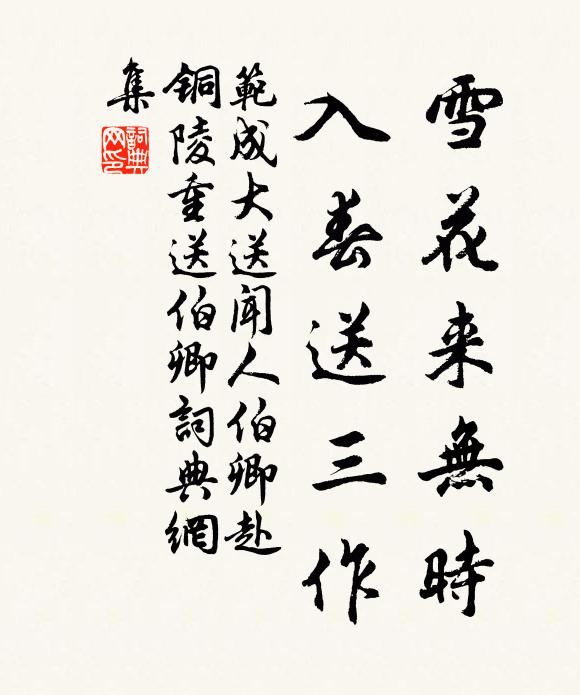 雪花来無時
入春送三作
範成大送闻人伯卿赴
铜陵重送伯卿詞典網
集
詞典
网印